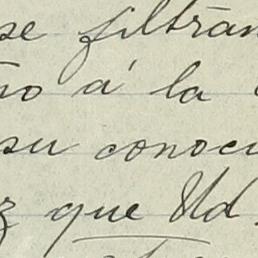 se filtran
no á la
su conoci
z que Ud.